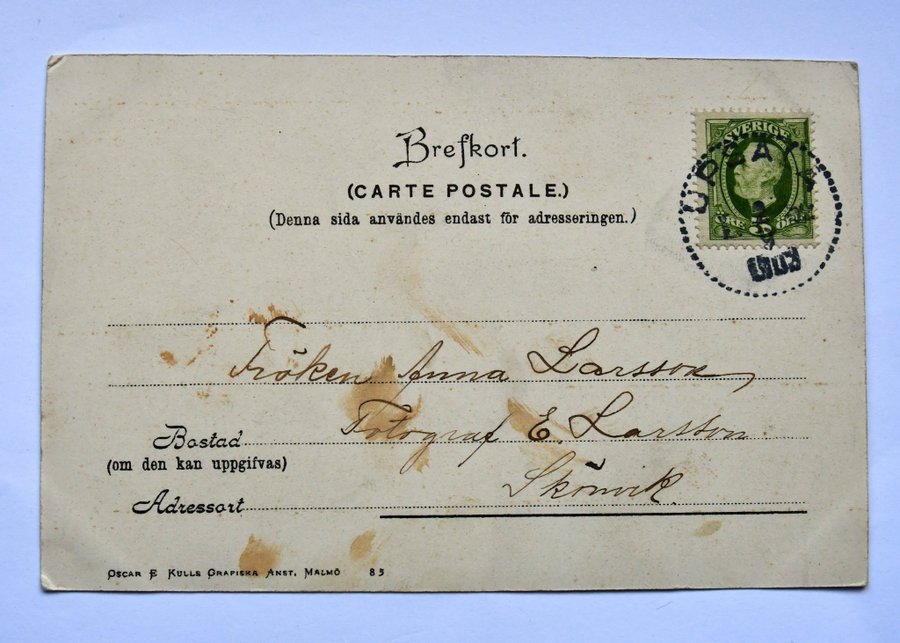 Brefkort.
(CARTE POSTALE.)
(Denna sida användes endast för adresseringen.)
SVERIGE
UPSALA
Fröken Anna Larsson
Fotograf E. Larsson
Bostad
(om den kan uppgifvas)
Skönvik.
Adressort
OSCAR E KULLS GRAFISKA ANST. MALMÖ 85